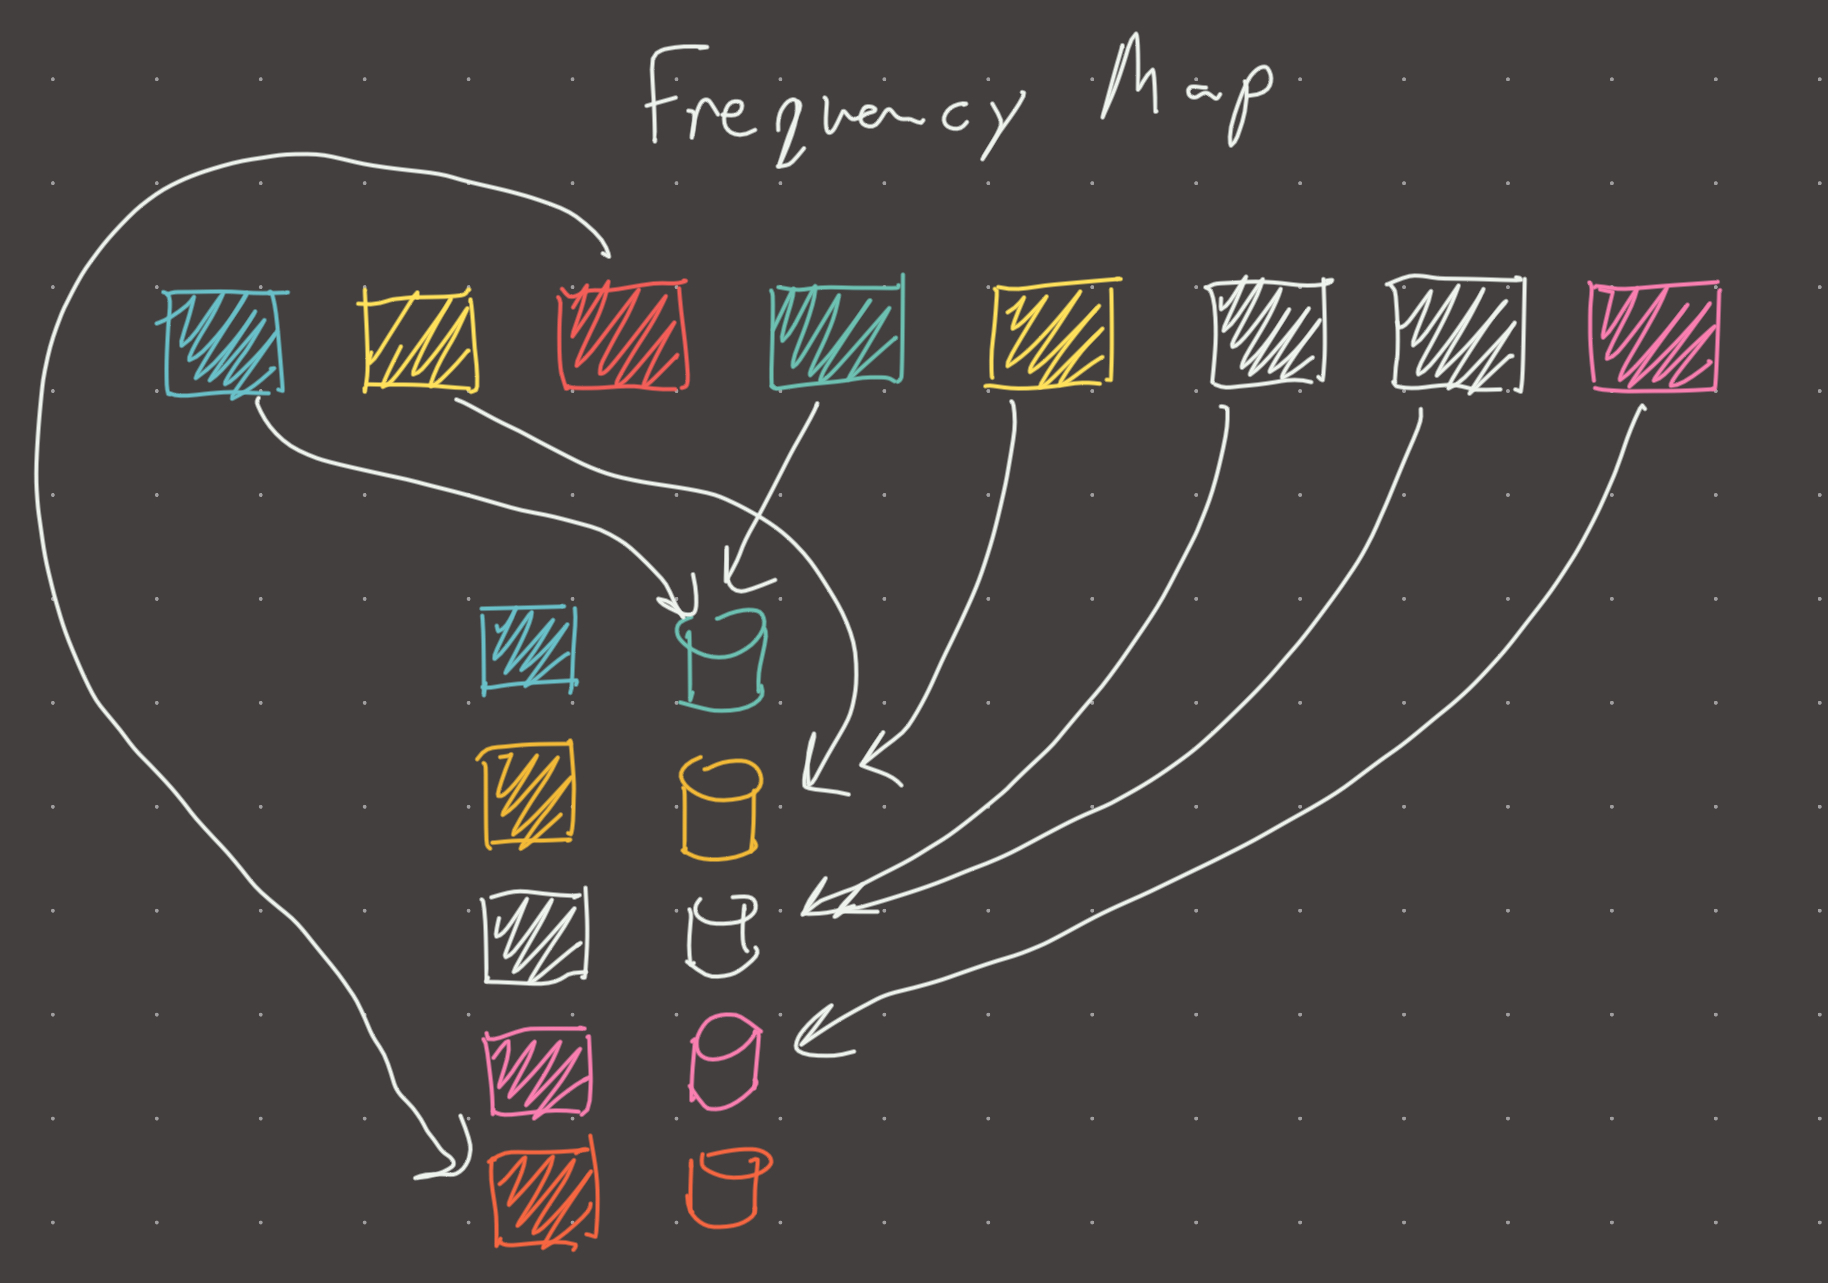 Frequency Map